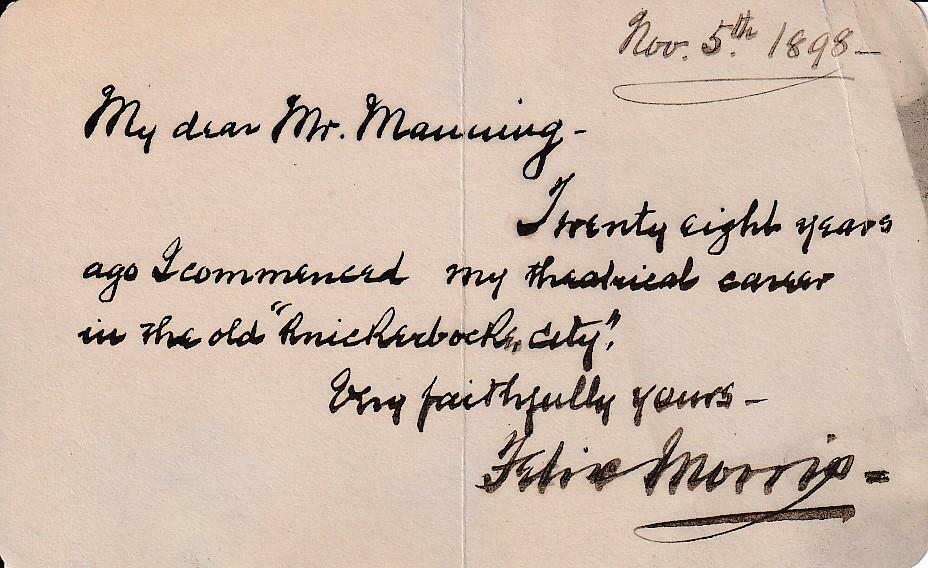 Nov. 5th. 1898—
My dear Mr. Manning–
Twenty eight years
ago I commenced my theatrical career
in the old "Knickerbocker City".
Very faithfully yours–
Felix Morris=